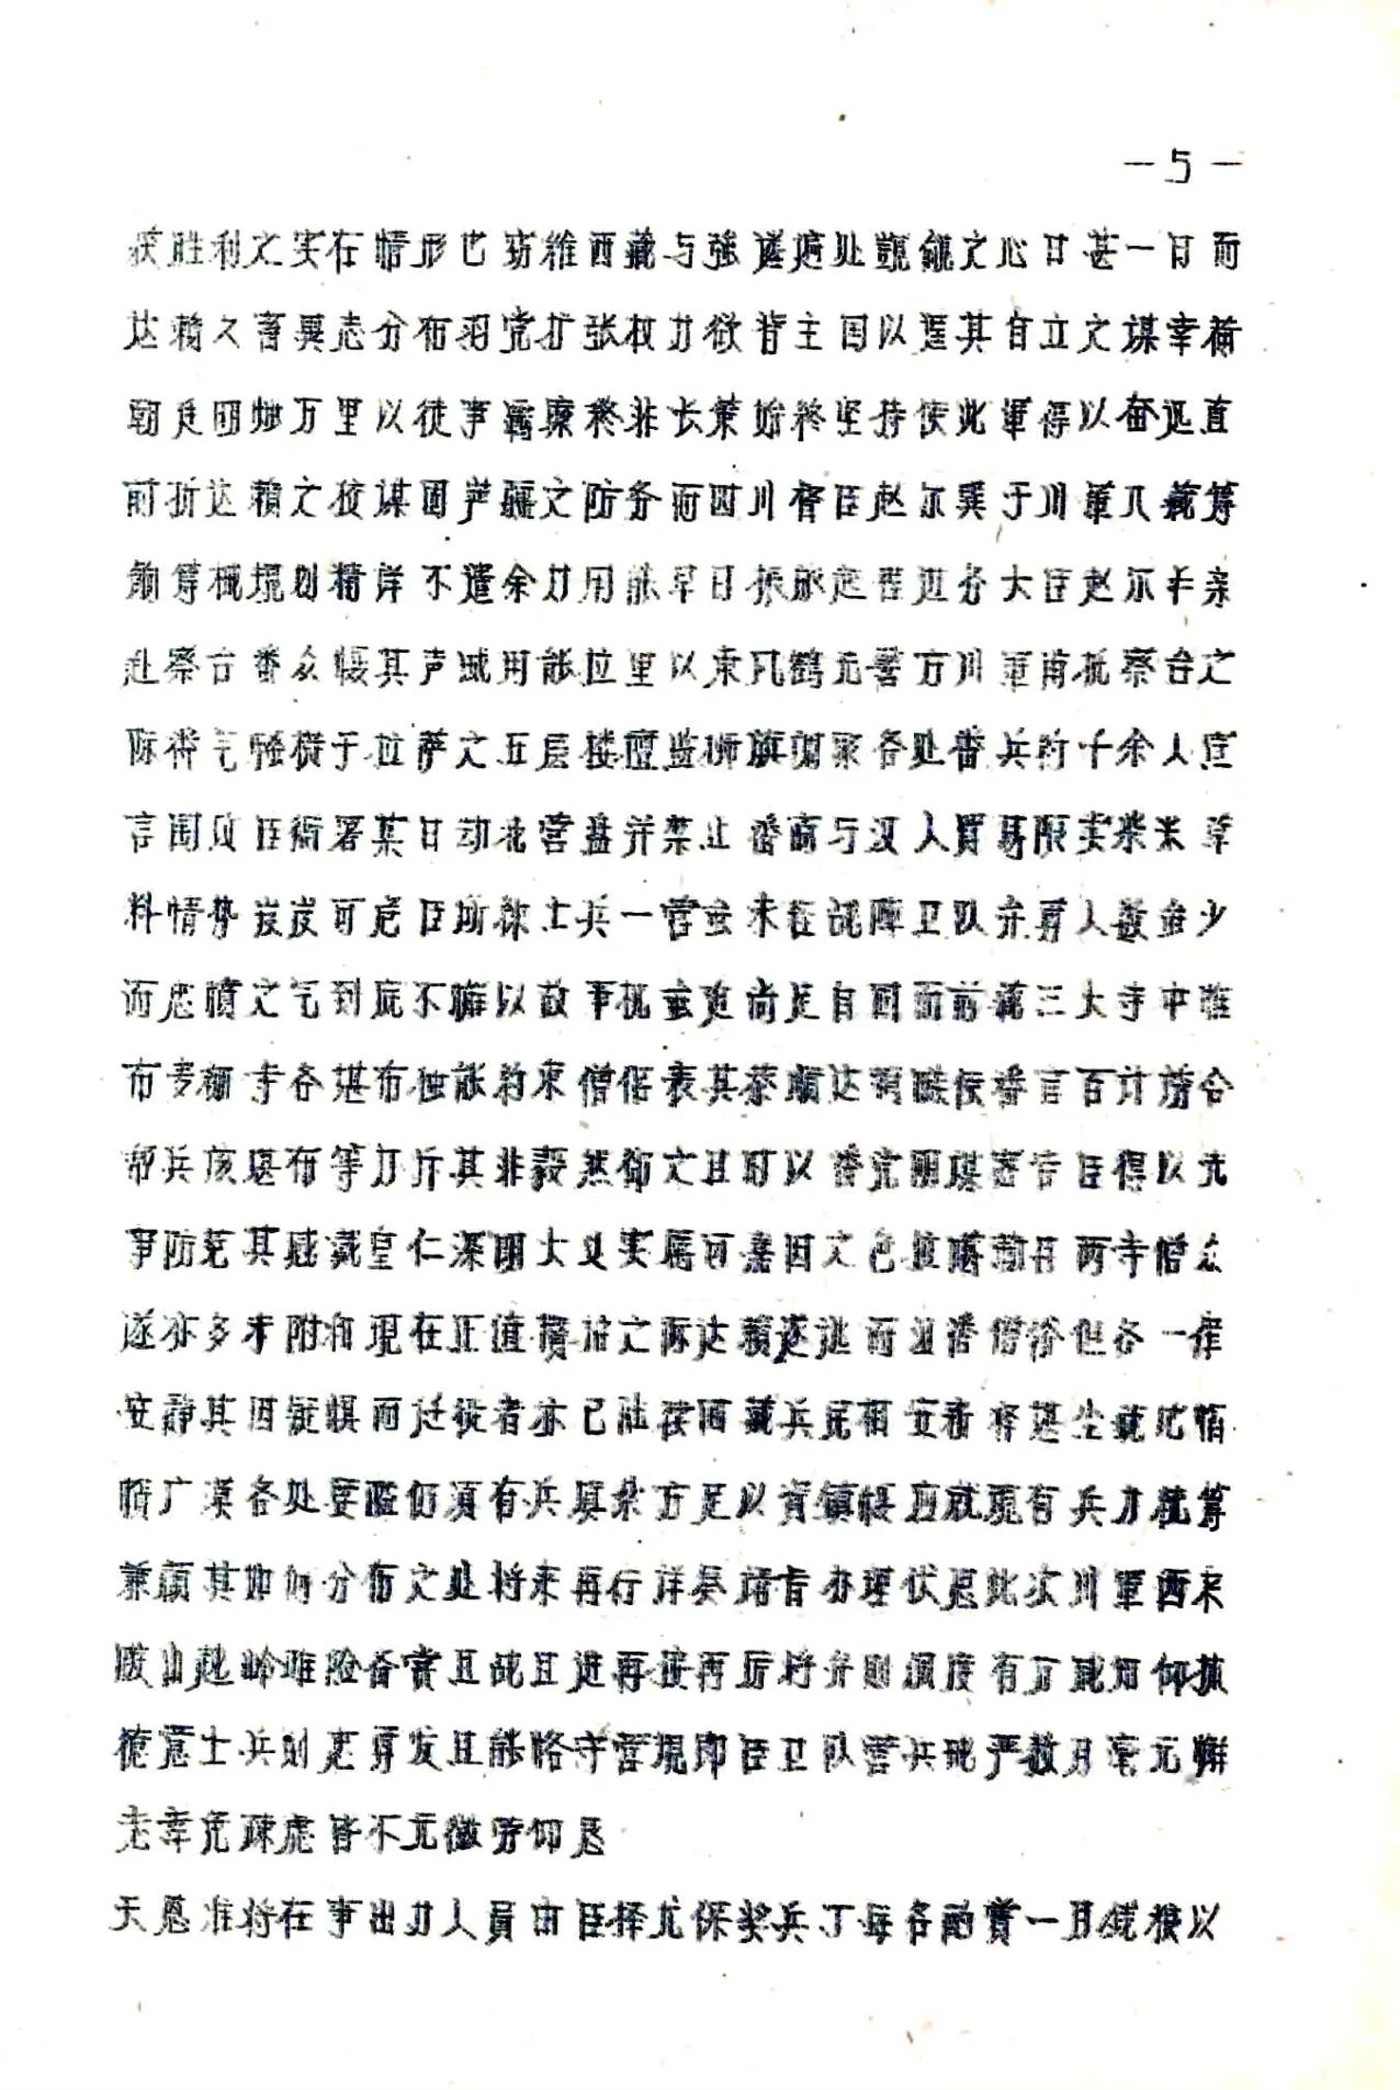 —5—
获胜利之实在情形也窃维西藏与强邻逼处觊觎之心日甚一日而
达赖久蓄异志分布羽党扩张权力欲背主国以逞其自立之谋幸荷
朝廷明烛万里以徒事羁縻终非长策始终坚持使此军得以奋迅直
前折达赖之狡谋固岩疆之防务而四川督臣赵尔巽于川军入藏筹
饷筹械规划精详不遗余力用能早日振旅边务大臣赵尔丰亲
赴察台番众慑其声威用能拉里以东风鹤无警方川军南抵察台之
际番气骚横于拉萨之五层楼竖监狮旗调聚各处番兵约千余人宣
言围攻臣衙署某日动北营盘并禁止番商与汉人贸易限卖柴米草
料情势岌岌可危臣所练士兵一营虽未在战阵卫队弁勇人数虽少
而忠愤之气到底不懈以故事机虽迫尚足自固而前藏三大寺中惟
布麦绷寺各堪布独能约束僧俗表其恭顺达赖嗾使番言百计胁令
帮兵该堪布等力斥其非毅然却之且时以番党阴谋密告臣得以先
事防范其感戴皇仁深明大义实属可嘉因之色拉噶勒丹两寺僧众
遂亦多未附和现在正值攒招之际达赖逐逃而汉番僧俗但各一律
安静其因疑惧而迁徙者亦已陆续回藏兵民相安衽席堪尘就此惟
幅广漠各处要隘仍须有兵填扎方足以资镇慑应就现有兵力统筹
兼顾其如何分布之处将来再行详奏请旨办理伏思此次川军西来
跋山越岭艰险备尝且战且进再接再厉将弁则调度有方咸知仰执
德意士兵则忠勇发且能恪守营规即臣卫队营兵昼严数月毫无懈
志幸免疏虞皆不无微劳仰恳
天恩准将在事出力人员由臣择尤保奖兵丁每各酌赏一月钱粮以